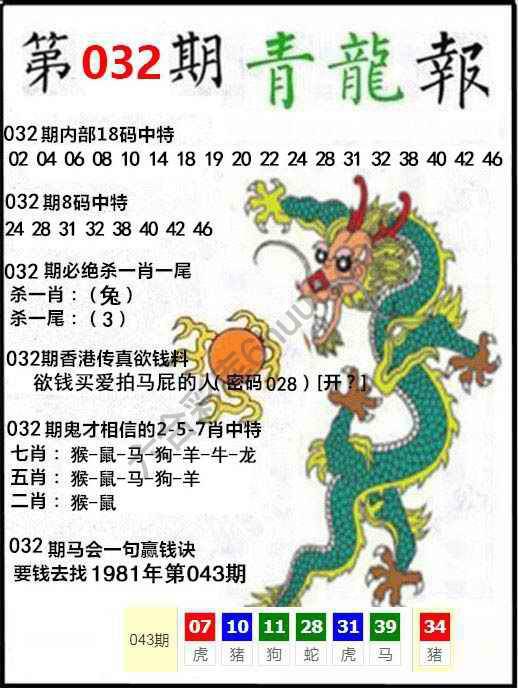 第032期青龍報
032期内部18码中特
02 04 06 08 10 14 18 19 20 22 24 28 31 32 38 40 42 46
032期8码中特
24 28 31 32 38 40 42 46
032期必绝杀一肖一尾
杀一肖：（兔）
杀一尾：（3）
032期香港传真欲钱料
欲钱买爱拍马屁的人(密码028)[开？]
032期鬼才相信的2-5-7肖中特
七肖：猴-鼠-马-狗-羊-牛-龙
五肖：猴-鼠-马-狗-羊
二肖：猴-鼠
032期马会一句赢钱诀
要钱去找1981年第043期
043期 07 10 11 28 31 39 34
虎 猪 狗 蛇 虎 马 猪